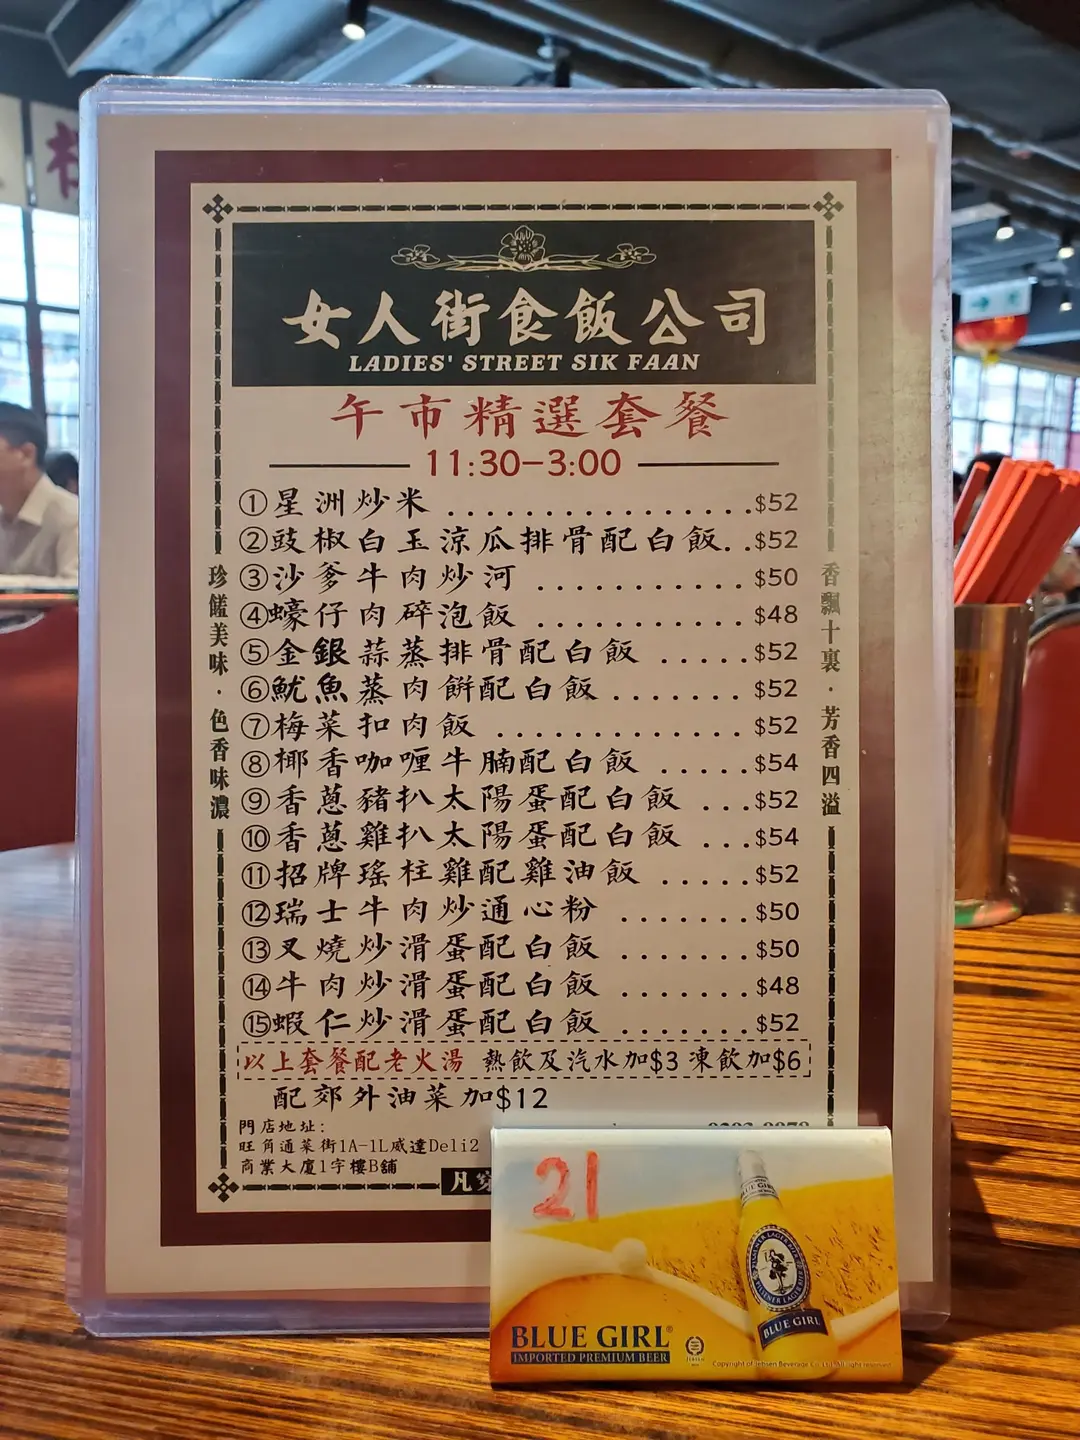 女人街食飯公司
LADIES' STREET SIK FAAN
午市精選套餐
11:30-3:00
①星洲炒米 ................$52
②豉椒白玉涼瓜排骨配白飯..$52
③沙爹牛肉炒河 ...........$50
④蠔仔肉碎泡飯 ...........$48
⑤金銀蒜蒸排骨配白飯 .....$52
⑥魷魚蒸肉餅配白飯 .......$52
⑦梅菜扣肉飯 .............$52
⑧椰香咖喱牛腩配白飯 .....$54
⑨香蔥豬扒太陽蛋配白飯 ...$52
⑩香蔥雞扒太陽蛋配白飯 ...$54
⑪招牌瑤柱雞配雞油飯 .....$52
⑫瑞士牛肉炒通心粉 .......$50
⑬叉燒炒滑蛋配白飯 .......$50
⑭牛肉炒滑蛋配白飯 .......$48
⑮蝦仁炒滑蛋配白飯 .......$52
以上套餐配老火湯 熱飲及汽水加$3 凍飲加$6
配郊外油菜加$12
門店地址:
旺角通菜街1A-1L威達Deli2
商業大廈1字樓B舖
凡
珍饈美味·色香味濃
香飄十裏·芳香四溢
21
BLUE GIRL
BLUE GIRL®
IMPORTED PREMIUM BEER
JEBSEN
Copyright of Jebsen Beverage Co. Ltd. All right reserved.